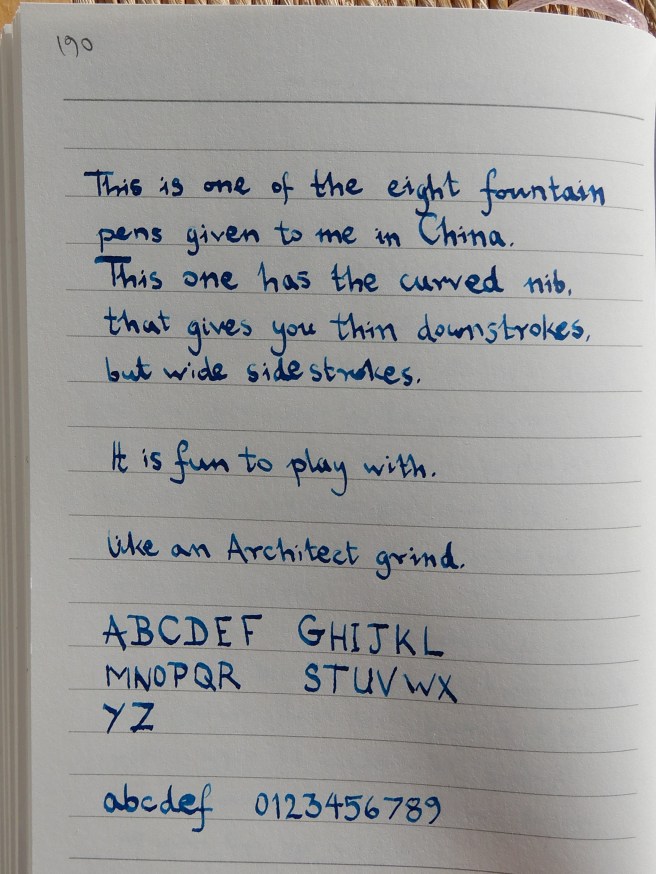 190
This is one of the eight fountain
pens given to me in China.
This one has the curved nib,
that gives you thin downstrokes,
but wide sidestrokes.
It is fun to play with.
like an Architect grind.
ABCDEF GHIJKL
MNOPQR STUVWX
YZ
abcdef 0123456789